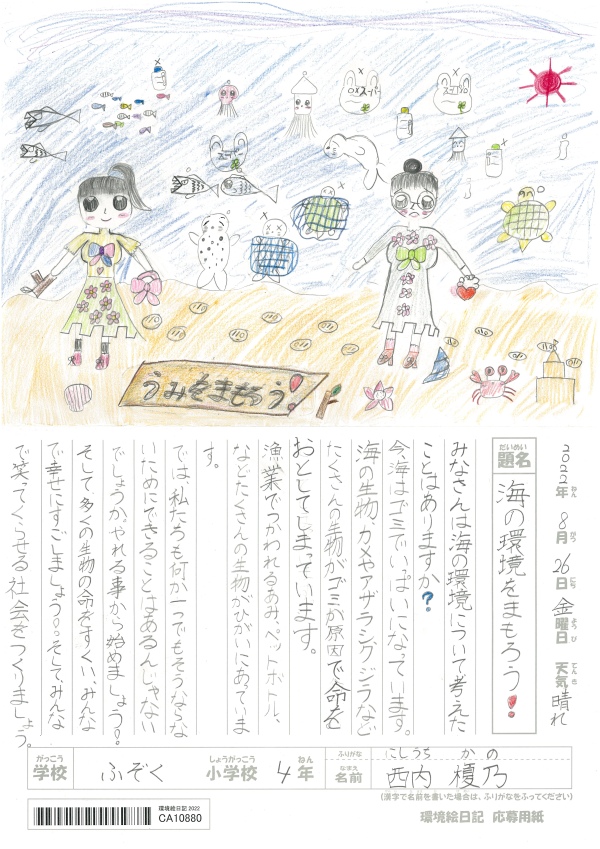 スーパー
スーパー
スーパー
うみをまもろう!
2022年 8月 26日 金曜日 天気 晴れ
ねん がつ にち ようび てんき
だいめい
題名 海の環境をまもろう!
みなさんは海の環境について考えた
ことはありますか?
今、海はゴミでいっぱいになっています。
海の生物、カメやアザラシ、クジラなど
たくさんの生物がゴミが原因で命を
おとしてしまっています。
漁業でつかわれるあみ、ペットボトル、
などたくさんの生物がひがいにあっていま
す。
では、私たちも何か一つでもそうならな
いためにできることはあるんじゃない
でしょうか。やれる事から始めましょう!
そして多くの生物の命をすくい、みんな
で幸せにすごしましょう!!そして、みんな
で笑ってくらせる社会をつくりましょう。
がっこう しょうがっこう ねん
学校 ふぞく 小学校 4年
ふりがな にしうち かの
なまえ
名前 西内 榎乃
(漢字で名前を書いた場合は、ふりがなをふってください)
環境絵日記 2022
CA10880
環境絵日記 応募用紙